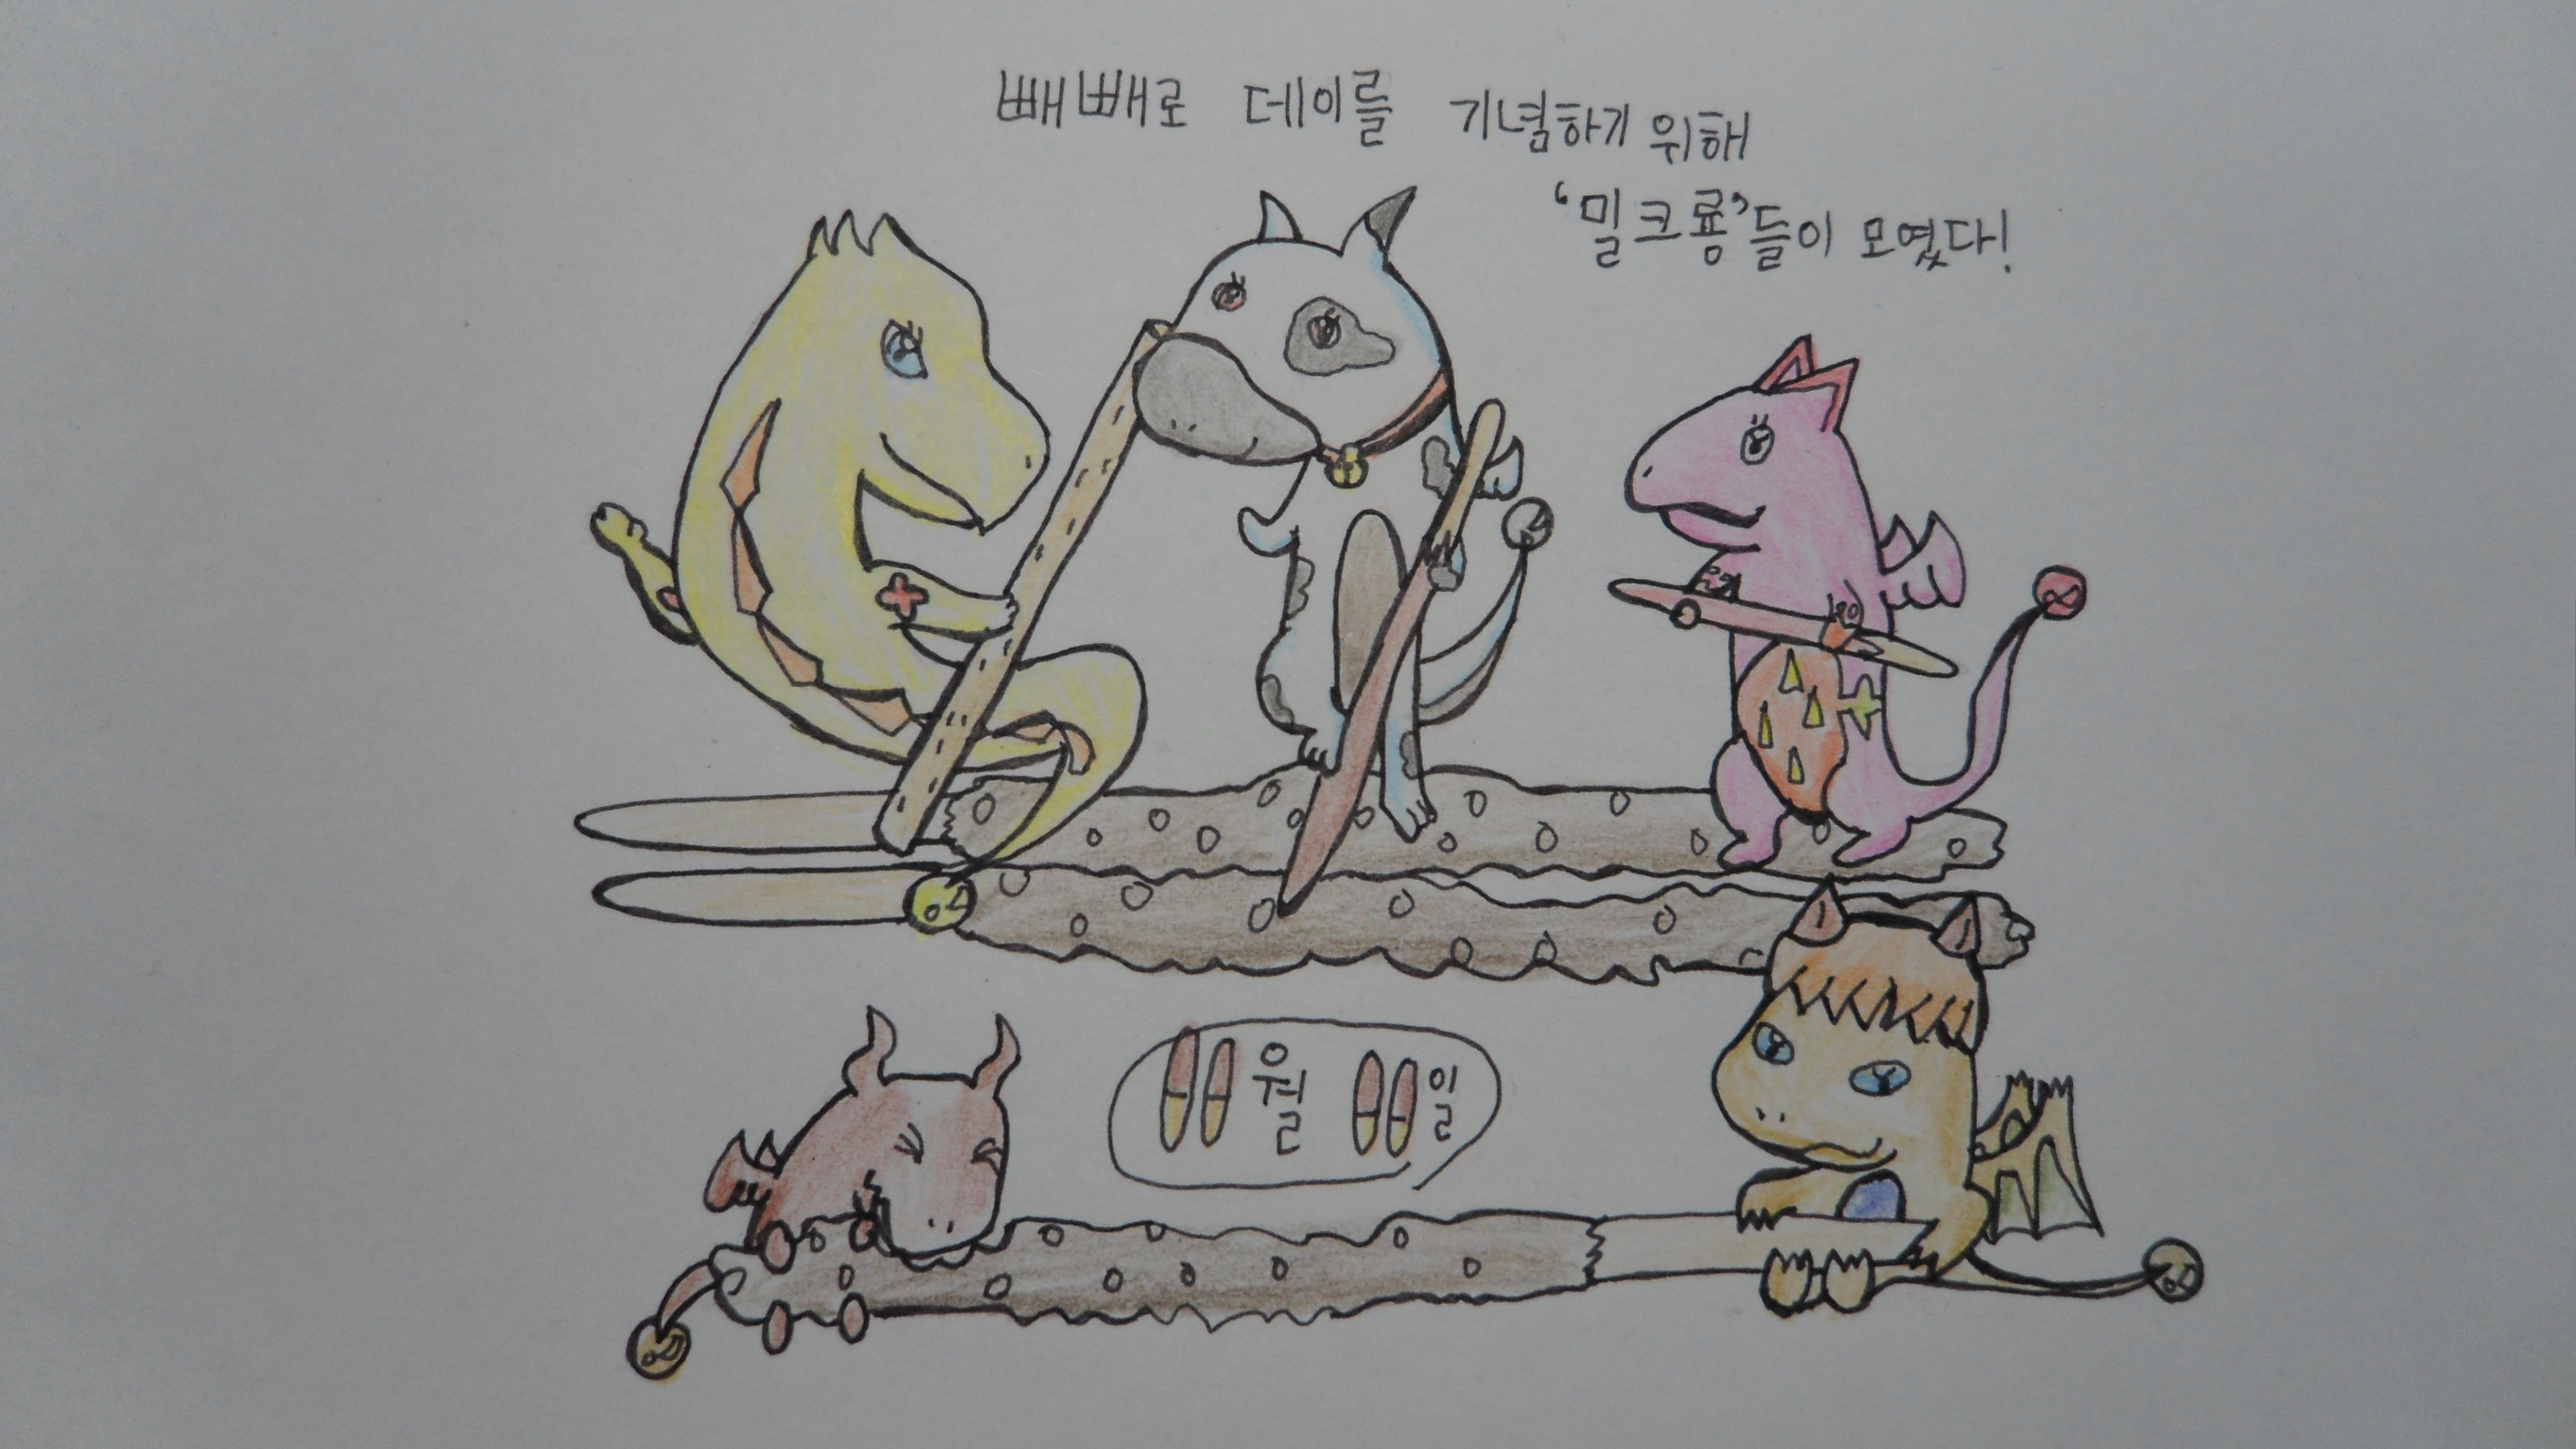 빼빼로 데이를 기념하기 위해
'밀크룡'들이 모였다!
11월 11일